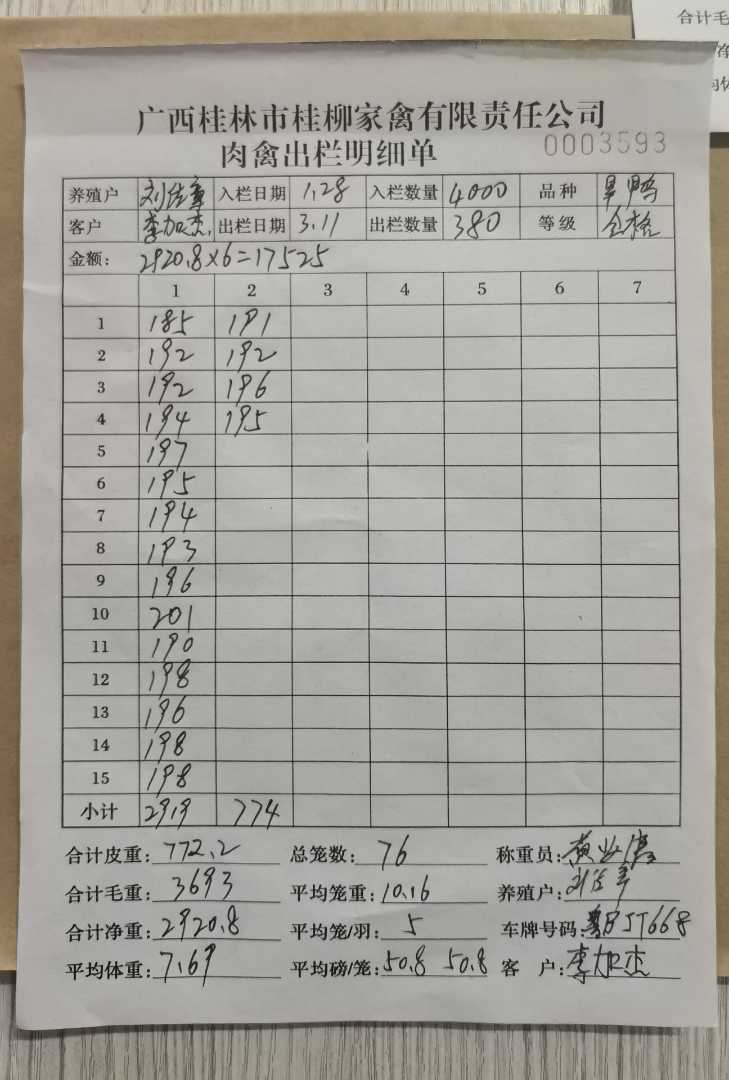 合计毛
净
均体
广西桂林市桂柳家禽有限责任公司
肉禽出栏明细单 0003593
养殖户 入栏日期 1.28 入栏数量 4000 品种 鸭
客户 李加杰 出栏日期 3.11 出栏数量 380 等级 合格
金额: 2920.8×6=17525
1 2 3 4 5 6 7
1 185 191
2 192 192
3 192 196
4 194 195
5 197
6 195
7 194
8 193
9 196
10 201
11 190
12 198
13 196
14 198
15 198
小计 2919 774
合计皮重: 772.2 总笼数: 76 称重员:
合计毛重: 3693 平均笼重: 10.16 养殖户:
合计净重: 2920.8 平均笼/羽: 5 车牌号码: JT668
平均体重: 7.69 平均磅/笼: 50.8 50.8 客 户: 李加杰